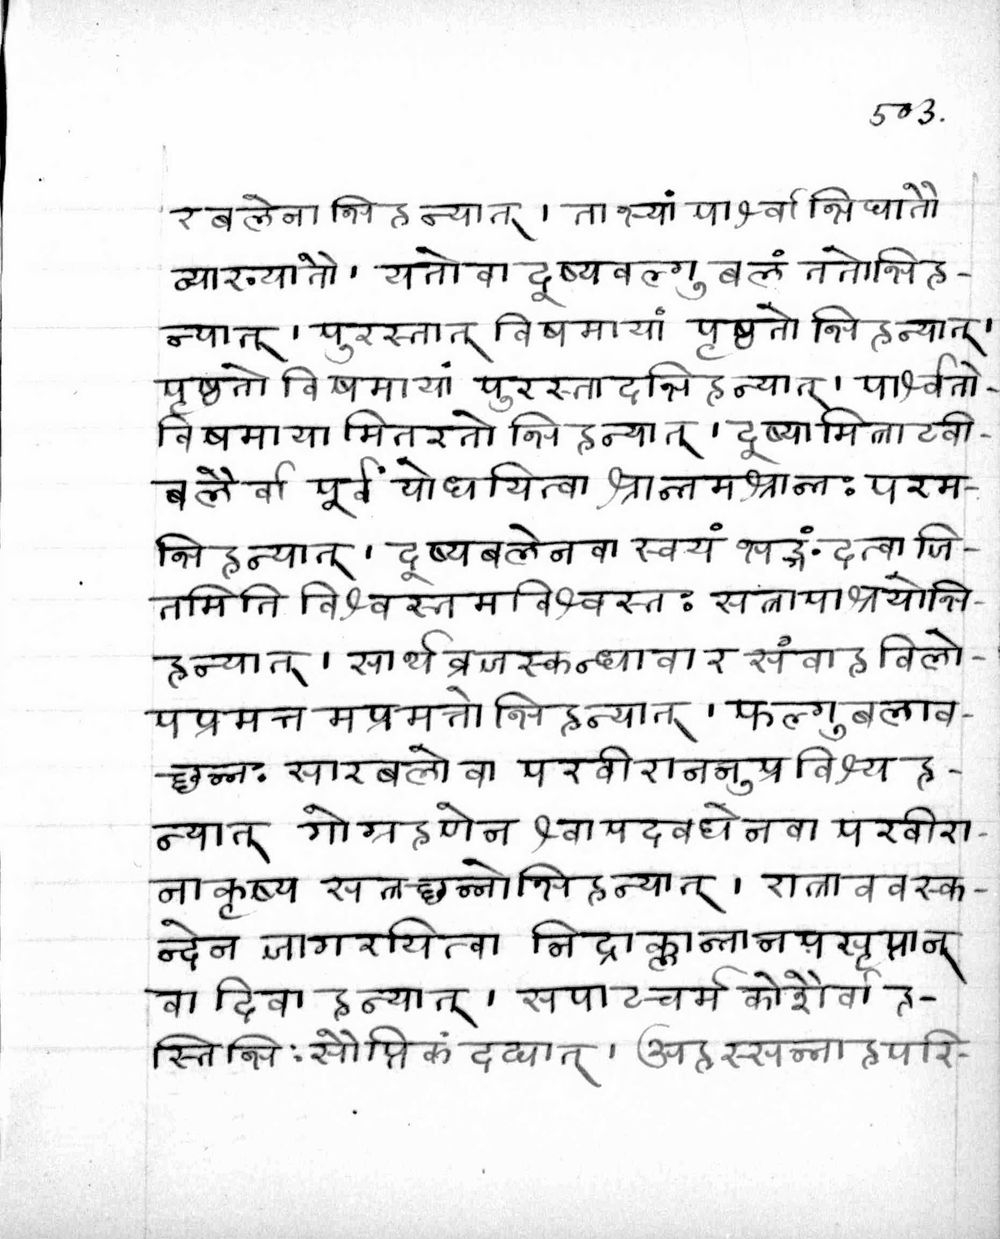 503.
रबलेनाभिहन्यात् । ताभ्यां पार्श्वाभिघातौ
व्याख्यातौ । यतो वा दूष्यवल्गुबलं ततोभिह-
न्यात् । पुरस्तात् विषमायां पृष्ठतोभिहन्यात् ।
पृष्ठतो विषमायां पुरस्तादभिहन्यात् । पार्श्वतो-
विषमायामितरतोभिहन्यात् । दूष्यामित्राटवी-
बलैर्वा पूर्वं योधयित्वा श्रान्तमश्रान्तः परम-
भिहन्यात् । दूष्यबलेन वा स्वयं भङ्गं दत्वा जि-
तमिति विश्वस्तमविश्वस्तः सत्रापाश्रयोभि-
हन्यात् । सार्थव्रजस्कन्धावारसंवाहविलो-
पप्रमत्तमप्रमत्तोभिहन्यात् । फल्गुबलाव-
च्छन्नः सारबलो वा परवीराननुप्रविश्य ह-
न्यात् गोग्रहणेन श्वापदवधेन वा परवीरा-
नाकृष्य सत्रच्छन्नोभिहन्यात् । रात्राववस्क-
न्देन जागरयित्वा निद्राक्लान्तानपसृप्तान्
वा दिवा हन्यात् । सपाटचर्मकोशैर्वा ह-
स्तिभिः सौप्तिकं दद्यात् । अहस्सन्नाहपरि-